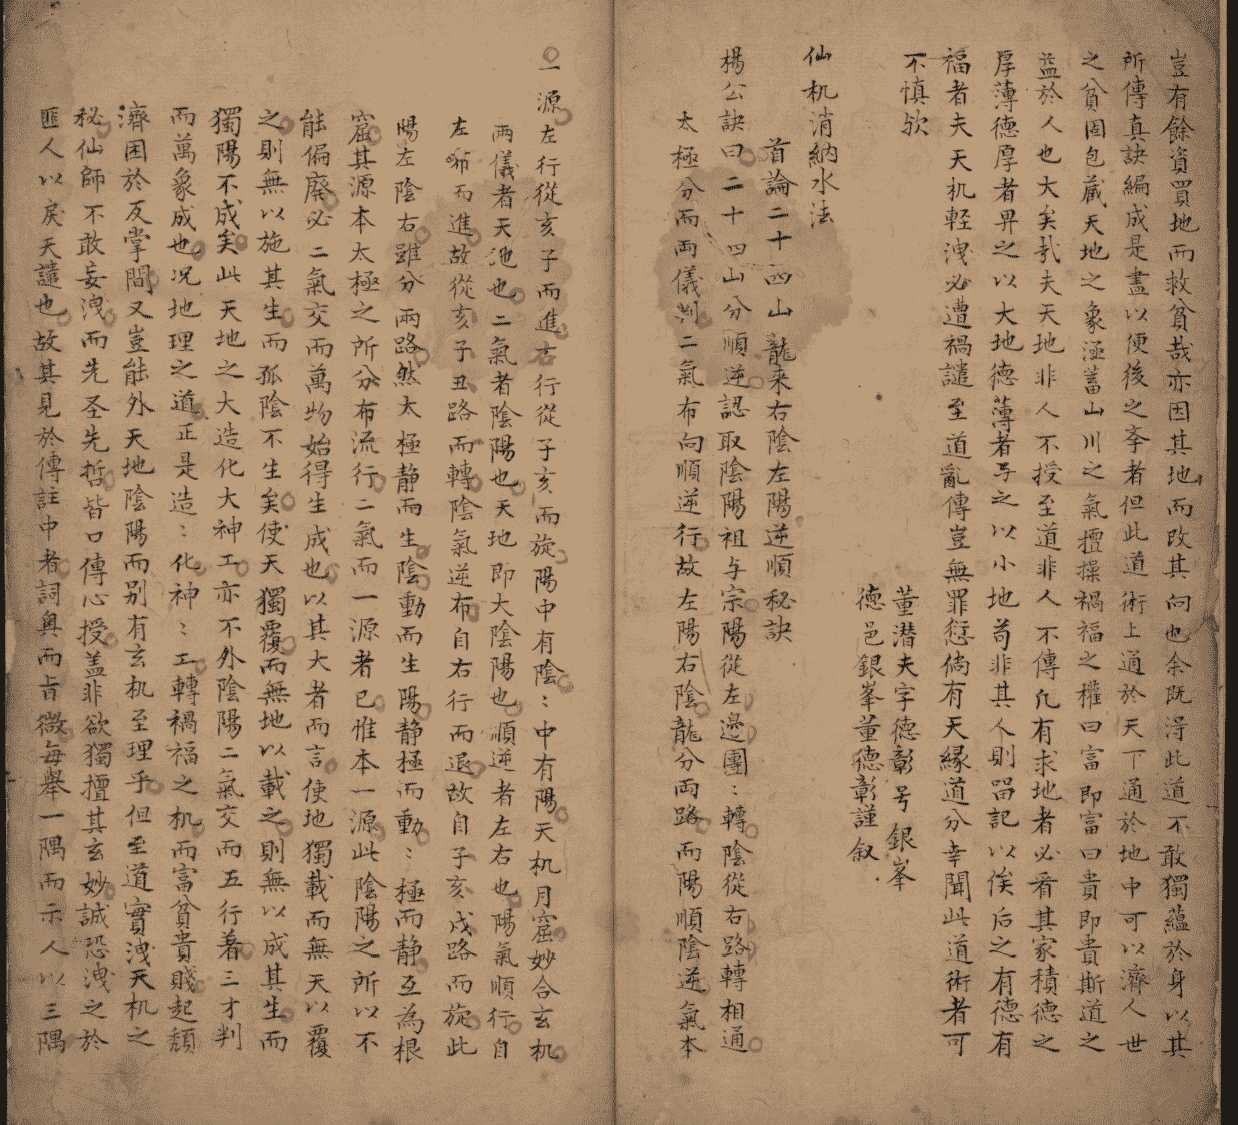 豈有餘資買地而救貧哉亦因其地而改其向也余既淂此道不敢獨蘊於身以其
所傳真訣編成是盡以便後之李者但此道術上通於天下通於地中可以濟人世
之貧困包藏天地之象涵蓄山川之氣擅操禍福之權曰富即富曰貴即貴斯道之
益於人也大矣㢤夫天地非人不授至道非人不傳凡有求地者必看其家積德之
厚薄德厚者畀之以大地德薄者与之以小地苟非其人則畱記以俟后之有德有
福者夫天机輕洩必遭禍譴至道亂傳豈無罪愆倘有天緣道分幸聞此道術者可
不慎欤
董潛夫字德彰号銀峯
德邑銀峯董德彰謹叙
仙机消納水法
首論二十四山龍来右陰左陽逆順秘訣
楊公訣曰二十四山分順逆認取陰陽祖与宗陽從左邊團〻轉陰從右路轉相通
太極分而两儀判二氣布向順逆行故左陽右陰龍分两路而陽順陰逆氣本
一源左行從亥子而進右行從子亥而旋陽中有陰〻中有陽天机月窟妙合玄机
两儀者天地也二氣者陰陽也天地即大陰陽也順逆者左右也陽氣順行自
左而進故從亥子丑路而轉陰氣逆布自右行而退故自子亥戌路而旋此
陽左陰右雖分兩路然太極静而生陰動而生陽静極而動〻極而静互為根
窟其源本太極之所分布流行二氣而一源者已惟本一源此陰陽之所以不
能偏廢必二氣交而萬物始得生成也以其大者而言使地獨載而無天以覆
之則無以施其生而孤陰不生矣使天獨覆而無地以載之則無以成其生而
獨陽不成矣此天地之大造化大神工亦不外陰陽二氣交而五行著三才判
而萬象成也况地理之道正是造〻化神〻工轉禍福之机而富貧貴賤起頹
濟困於反掌間又豈能外天地陰陽而别有玄机至理乎但至道實洩天机之
秘仙師不敢妄洩而先圣先哲皆口傳心授盖非欲獨擅其玄妙誠恐洩之於
匪人以戾天譴也故其見於傳註中者詞奥而旨微每舉一隅而示人以三隅